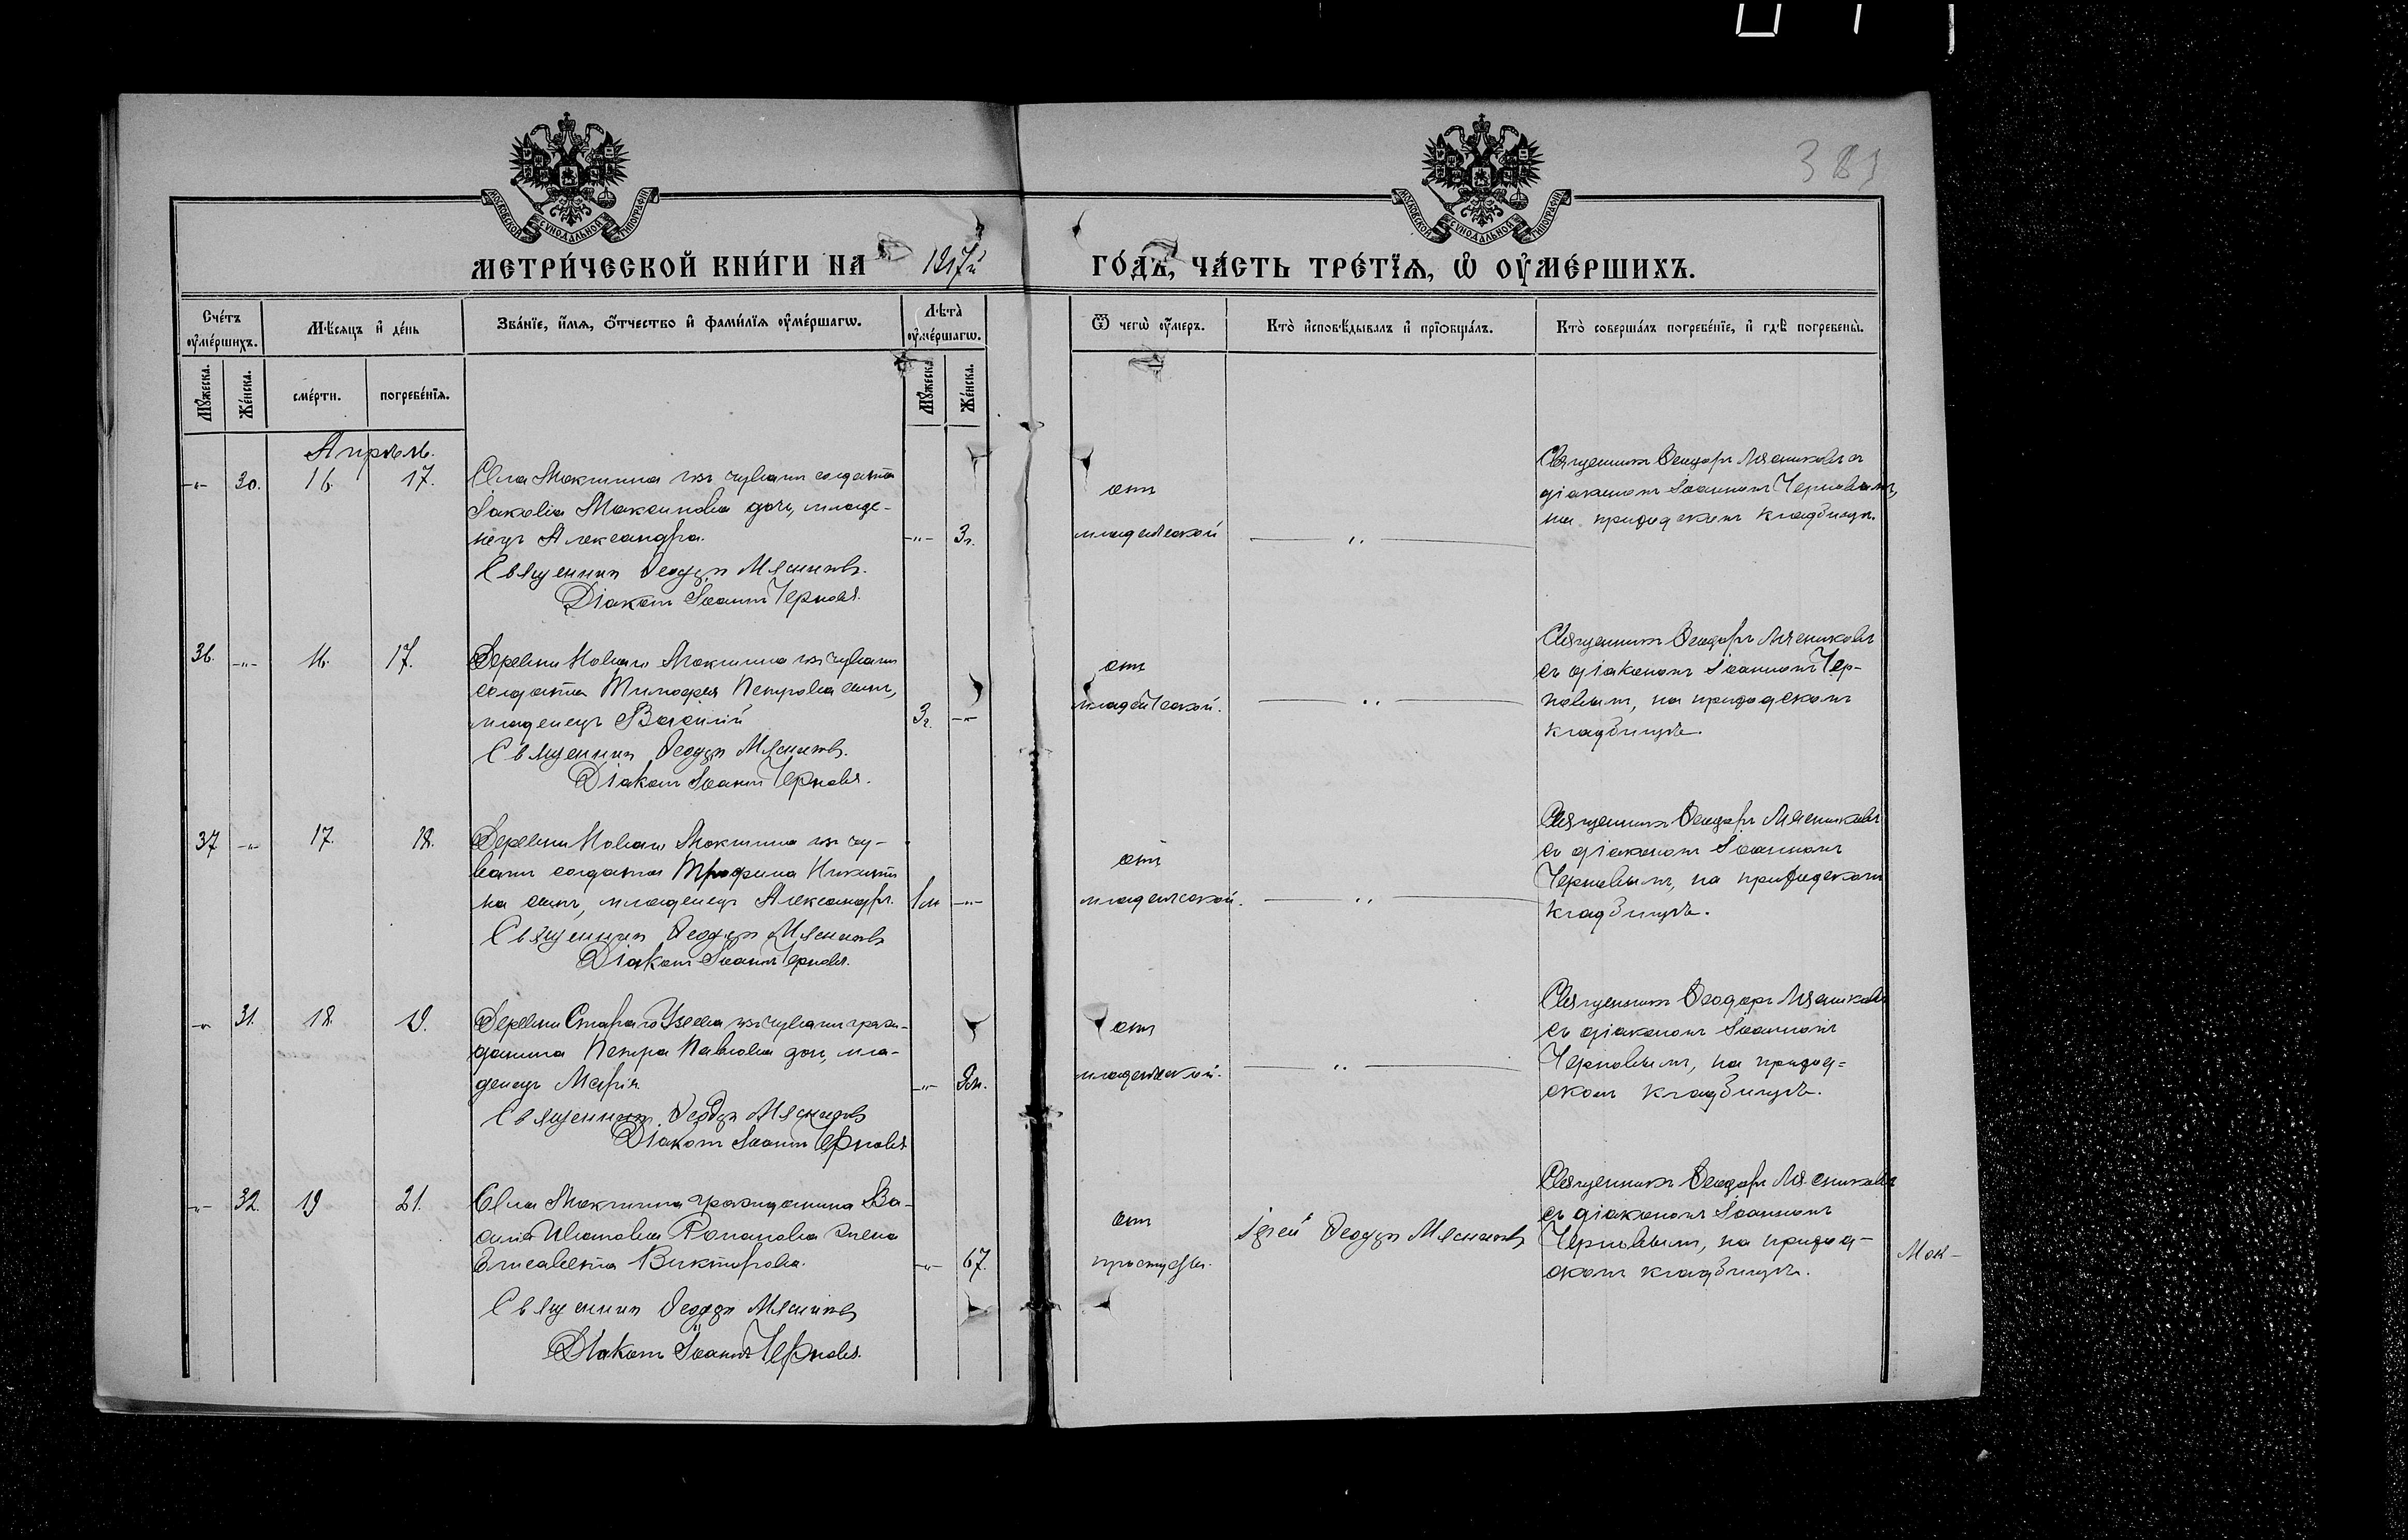 383
МОСКОВСКОЙ СѴНОДАЛЬНОЙ ТИПОГРАФІИ
МОСКОВСКОЙ СѴНОДАЛЬНОЙ ТИПОГРАФІИ
МЕТРИ́ЧЕСКОЙ КНИ́ГИ НА 1917й ГО́ДЪ, ЧА́СТЬ ТРЕ́ТЇѦ, Ѡ҆ ОУ҆МЕ́РШИХЪ.
Сче́тъ оу҆ме́ршихъ.
Мѣ́сяцъ и҆ де́нь
Зва́нїе, и҆́мя, ѻ҆́тчество и҆ фами́лїя оу҆ме́ршагѡ.
Лѣ́та̀ оу҆ме́ршагѡ.
Ѿ чегѡ̀ оу҆́меръ.
Кто̀ и҆сповѣ́дывалъ и҆ прїѡбща́лъ.
Кто̀ соверша́лъ погребе́нїе, и҆ гдѣ̀ погребены̀.
Мꙋ́жеска.
Же́нска.
сме́рти.
погребе́нїя.
Мꙋ́жеска.
Же́нска.
Апрѣль.
-"- 30. 16. 17. Села Мокшина изъ чувашъ солдата
Іакова Максимова дочь, младе-
нецъ Александра. -"- 3г.
Священникъ Ѳеодоръ Мясниковъ.
Діаконъ Іоаннъ Черновъ.
отъ
младенческой
"
Священникъ Ѳеодоръ Мясниковъ съ
діакономъ Іоанномъ Черновымъ,
на приходскомъ кладбищѣ.
36. -"- 16. 17. Деревни Новаго Мокшина изъ чувашъ
солдата Тимофея Петрова сынъ,
младенецъ Василій 3г. -"-
Священникъ Ѳеодоръ Мясниковъ.
Діаконъ Іоаннъ Черновъ.
отъ
младенческой.
"
Священникъ Ѳеодоръ Мясниковъ
съ діакономъ Іоанномъ Чер-
новымъ, на приходскомъ
кладбищѣ.
37 -"- 17. 18. Деревни Новаго Мокшина изъ чу-
вашъ солдата Трофима Никити
на сынъ, младенецъ Александръ. 1м -"-
Священникъ Ѳеодоръ Мясниковъ
Діаконъ Іоаннъ Черновъ.
отъ
младенческой.
"
Священникъ Ѳеодоръ Мясниковъ
съ діакономъ Іоанномъ
Черновымъ, на приходскомъ
кладбищѣ.
-"- 31. 18. 19. Деревни Стараго Узеева изъ чувашъ граж-
данина Петра Павлова дочь, мла-
денецъ Марія. -"- 8м.
Священникъ Ѳеодоръ Мясниковъ
Діаконъ Іоаннъ Черновъ
отъ
младенческой.
"
Священникъ Ѳеодоръ Мясниковъ
съ діакономъ Іоанномъ
Черновымъ, на приход-
скомъ кладбищѣ.
-"- 32. 19 21. Села Мокшина гражданина Ва-
силія Иванова Романова жена
Елисавета Викторова. -"- 67.
Священникъ Ѳеодоръ Мясниковъ
Діаконъ Іоаннъ Черновъ.
отъ
простуды.
Іерей Ѳеодоръ Мясниковъ
Священникъ Ѳеодоръ Мясниковъ
съ діакономъ Іоанномъ
Черновымъ, на приход-
скомъ кладбищѣ.
Мок-